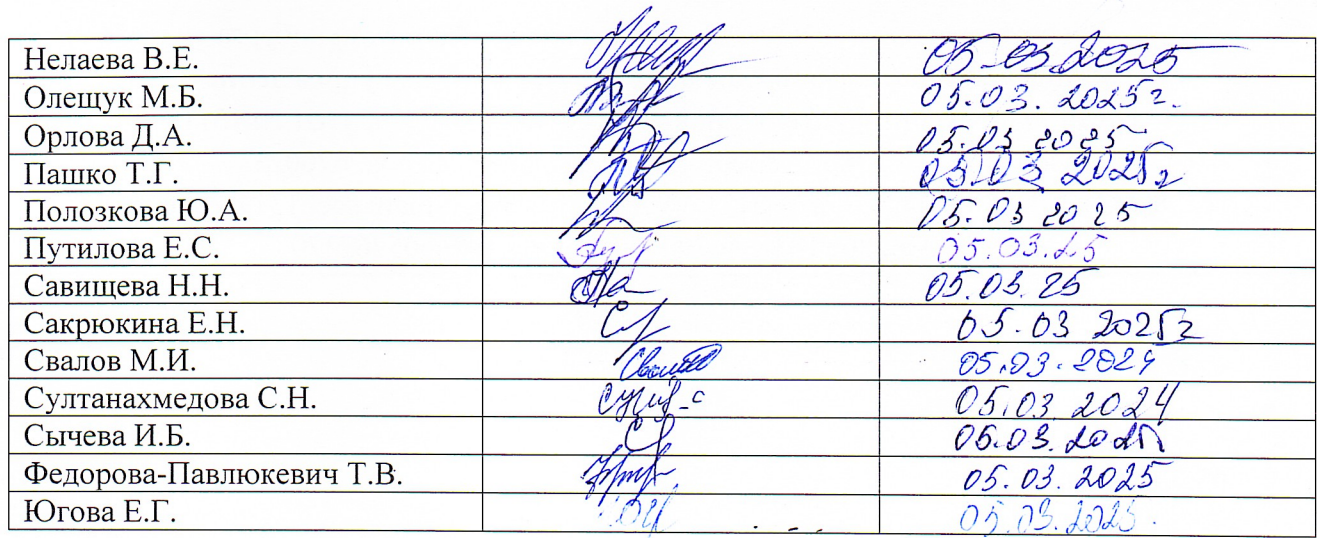 Нелаева В.Е. 05.03.2025
Олещук М.Б. 05.03.2025г.
Орлова Д.А. 05.03 2025
Пашко Т.Г. 05.03 2025г
Полозкова Ю.А. 05.03 2025
Путилова Е.С. 05.03.25
Савищева Н.Н. 05.03.25
Сакрюкина Е.Н. 05.03 2025г
Свалов М.И. 05.03.2024
Султанахмедова С.Н. 05.03.2024
Сычева И.Б. 05.03.2025
Федорова-Павлюкевич Т.В. 05.03.2025
Югова Е.Г. 05.03.2025.